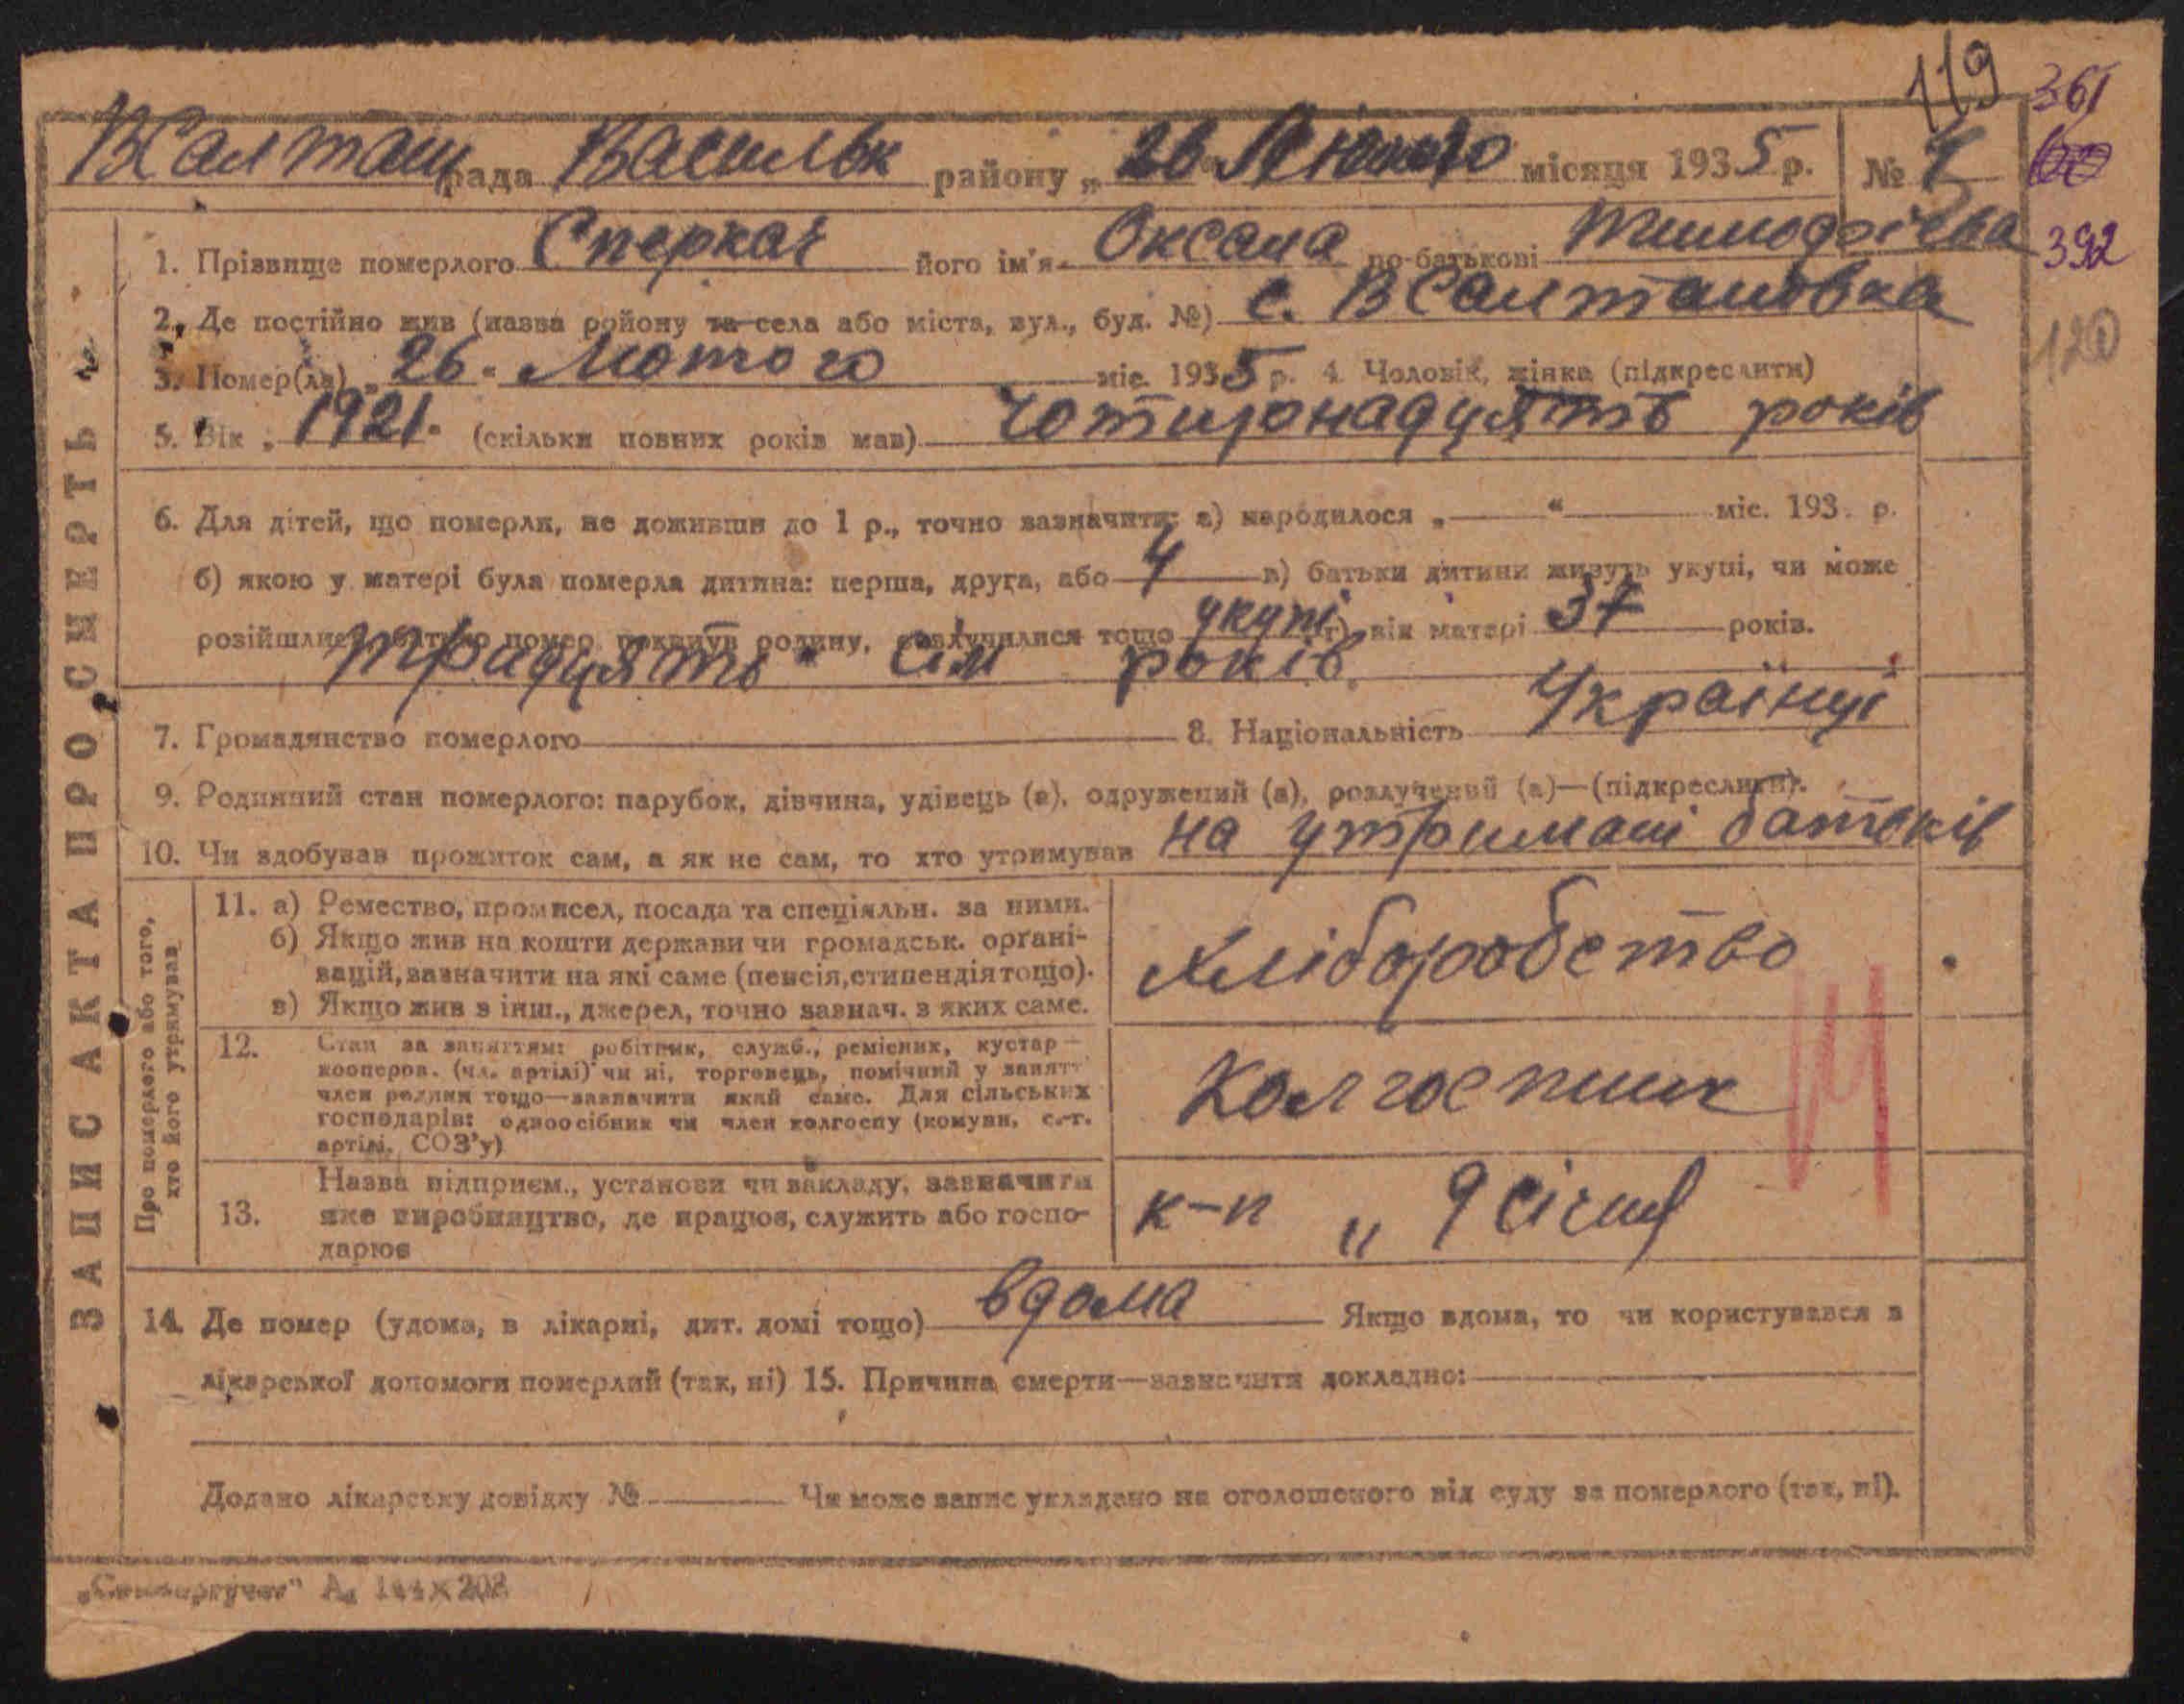 119
361
ВСалтан рада Васильк району „ 26 Лютого місяця 1935 р. № 4
392
1. Прізвище померлого Сперкач його ім'я Оксана по-батькові Тимофіївна
2. Де постійно жив (назва ройону та села або міста, вул., буд. №) с. ВСалтановка
120
3. Помер(ла) „ 26 " Лютого міс. 1935 р. 4. Чоловік, жінка (підкреслити)
5. Вік „ 1921 " (скільки повних років мав) Чотирнадцять років
6. Для дітей, що померли, не доживши до 1 р., точно зазначити: а) народилося „ — " — міс. 193 . р.
б) якою у матері була померла дитина: перша, друга, або 4 в) батьки дитини живуть укупі, чи може
розійшлися, батько помер, покинув родину, розлучилися тощо укупі г) вік матері 37 років.
тридцять сім років
7. Громадянство померлого — 8. Національність Українці
9. Родинний стан померлого: парубок, дівчина, удівець (а), одружений (а), розлучений (а)—(підкреслити).
10. Чи здобував прожиток сам, а як не сам, то хто утримував на утримані батьків
ЗАПИС АКТА ПРО СМЕРТЬ
Про померлого або того,
хто його утримував
11. а) Ремество, промисел, посада та спеціяльн. за ними.
б) Якщо жив на кошти держави чи громадськ. органі-
зацій, зазначити на які саме (пенсія, стипендія тощо).
в) Якщо жив з інш., джерел, точно зазнач. з яких саме.
Хліборобство
12. Стан за заняттям: робітник, служб., ремісник, кустар—
кооперов. (чл. артілі) чи ні, торговець, помічний у занятт
член родини тощо—зазначити який саме. Для сільських
господарів: одноосібник чи член колгоспу (комуни, с.-г.
артілі, СОЗ'у)
Колгоспник
13. Назва підприєм., установи чи закладу, зазначити
яке виробництво, де працює, служить або госпо-
дарює
к-п „ 9 січня
14. Де помер (удома, в лікарні, дит. домі тощо) вдома Якщо вдома, то чи користувався з
лікарської допомоги померлий (так, ні) 15. Причина смерти—зазначити докладно:
Додано лікарську довідку № — Чи може запис укладено на оголошеного від суду за померлого (так, ні).